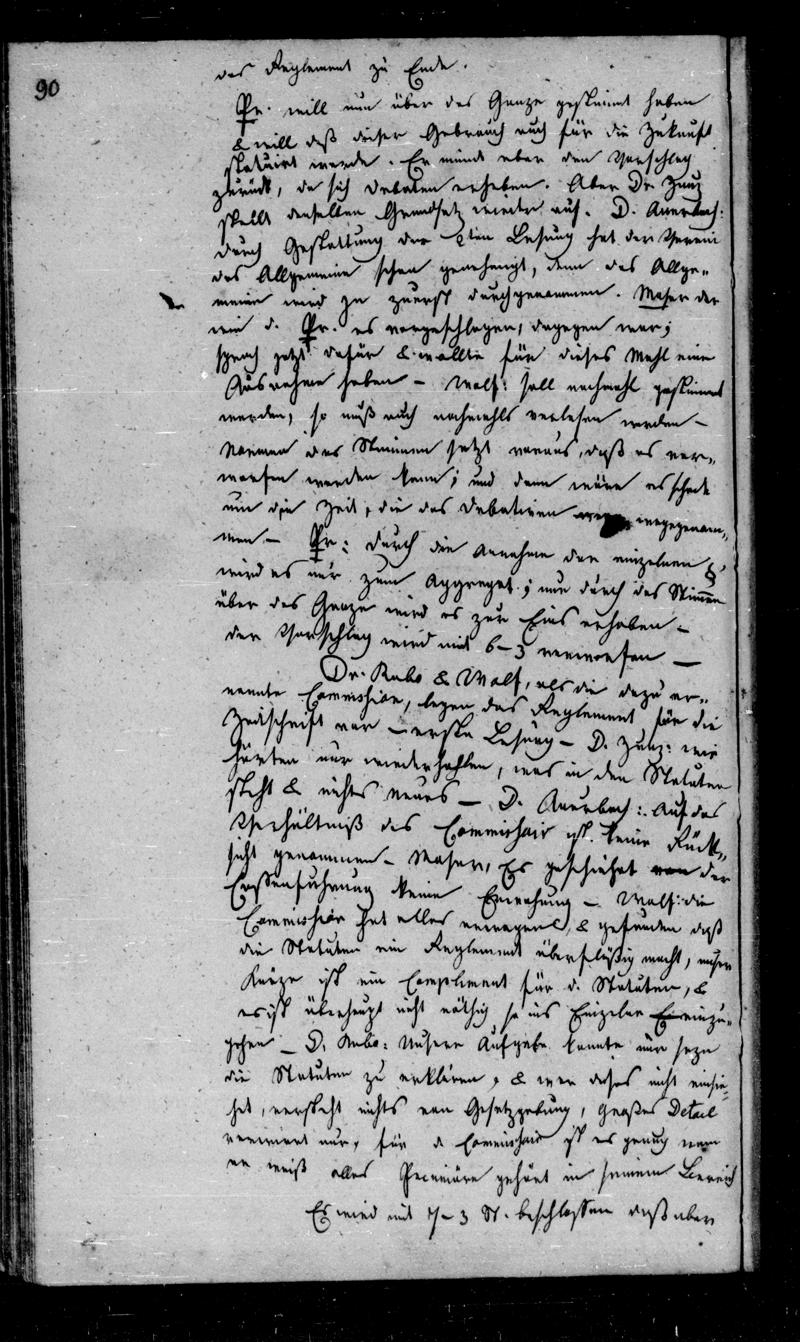 90
das Reglement zu Ende.
Pr. will nun über das Ganze gestimmt haben
& will daß dieser Gebrauch auch für die Zukunft
statuirt werde. Er nimmt aber den Vorschlag
zurück, da sich Debaten erheben. Aber Dr. Zunz
stellt denselben Grundsatz wieder auf. D. Auerbach:
durch Gestattung der 2ten Lesung hat der Verein
das Allgemeine schon genehmigt, denn das Allge-
meine wird ja zuerst durchgenommen. Moser der
wie d. Pr. es vorgeschlagen, dagegen war;
sprach jetzt dafür & wollte für dieses Mahl eine
Ausnahme haben – Wolf: soll nochmahl gestimmt
werden, so muß auch nochmahls verlesen werden –
das Stimmen setzt voraus, daß es ver-
worfen werden kann; und dann wäre es schade
um die Zeit, die das Debatiren weggenom-
men – Pr: durch die Annahme der einzelnen §
wird es nur zum Aggregat; nur durch das Stimmen
über das Ganze wird es zur Eins erhoben –
der Vorschlag wird mit 6–3 verworfen –
Dr. Rubo & Wolf, als die dazu er-
nannte Commission, legen das Reglement für die
Zeitschrift vor – erste Lesung – D. Zunz: wir
hörten nur wiederhohlen, was in den Statuten
steht & nichts neues – D. Auerbach: Auf das
Verhältniß des Commissair ist keine Rück-
sicht genommen – Moser, Es geschiehet von der
Cassenführung keine Erwähnung – Wolf: die
Commission hat alles erwogen, & gefunden daß
die Statuten ein Reglement überflüßig macht, unsre
Kürze ist ein Compliment für d. Statuten, &
es ist überhaupt nicht nöthig so ins Einzelne einzu-
gehen – D. Rubo: Unsere Aufgabe konnte nur seyn
die Statuten zu erklären, & wer dieses nicht einsie-
het, versteht nichts von Gesetzgebung, großes Detail
verwirrt nur, für d Commissair ist es genug wenn
er weiß alles Pecuniäre gehört in seinem Bereich
Es wird mit 7–3 St. beschlossen daß aber